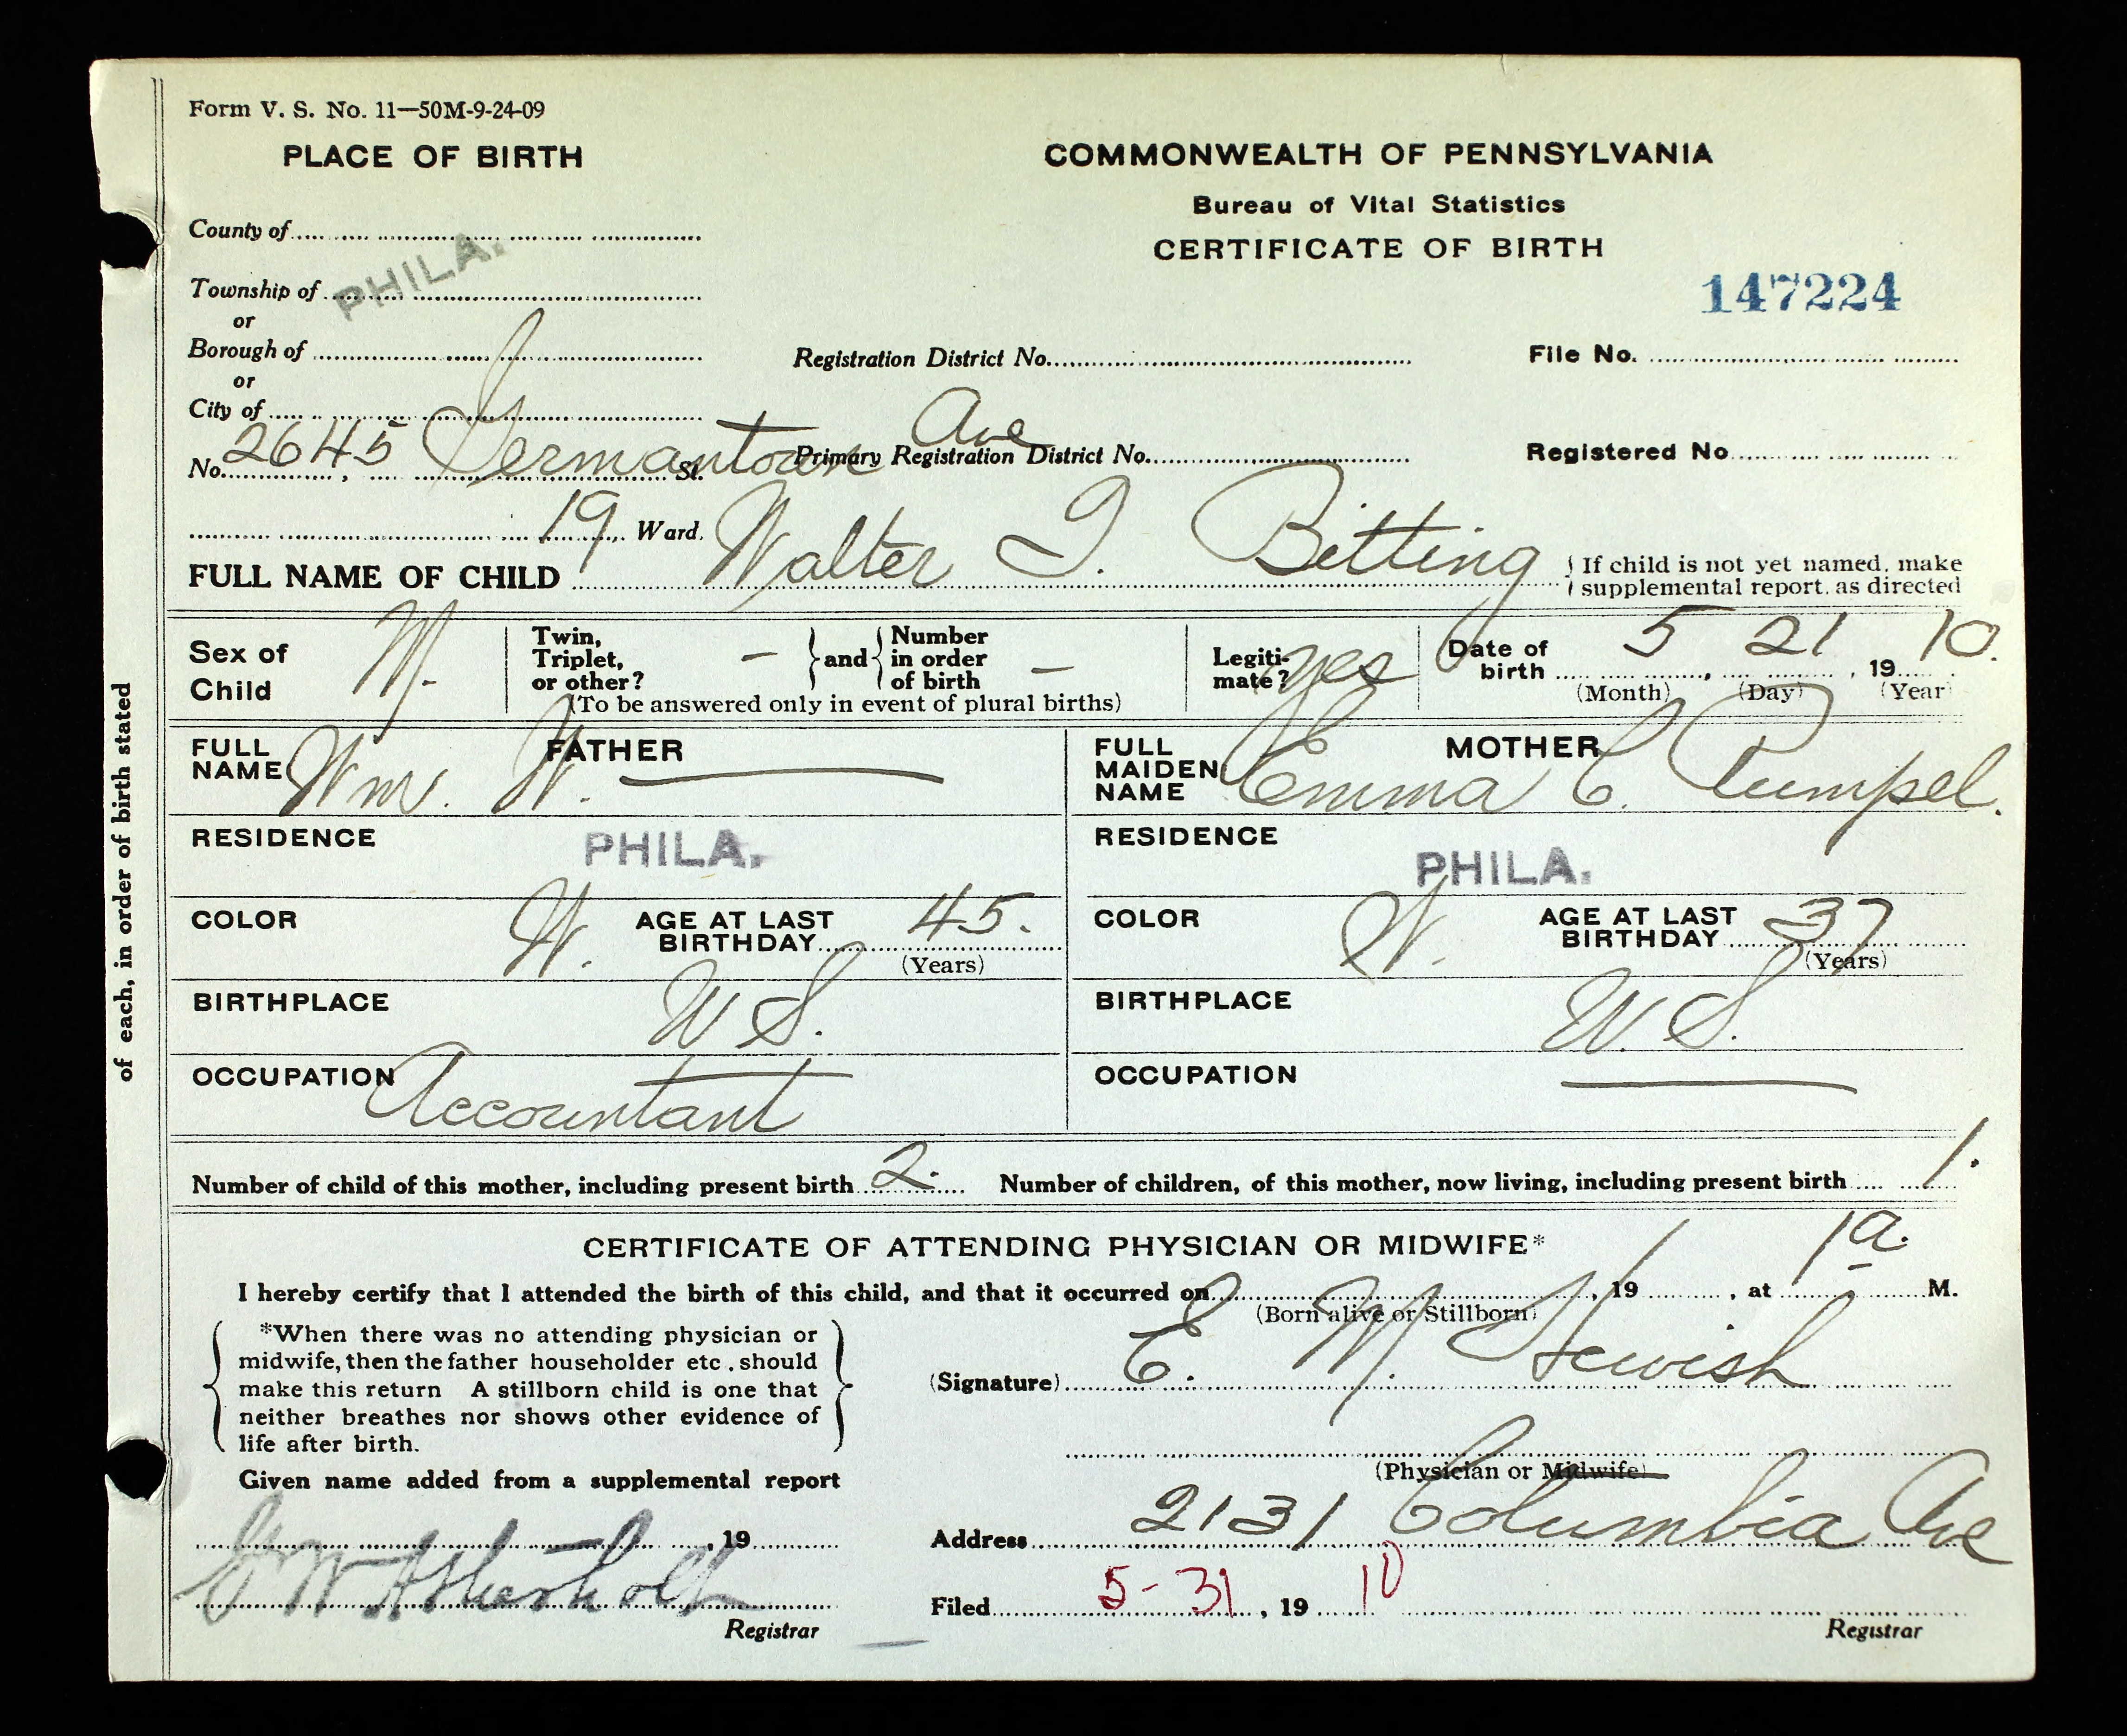 Form V. S. No. 11—50M-9-24-09
PLACE OF BIRTH
County of
PHILA.
Township of
or
Borough of
or
City of
No. 2645 Germantown Ave St.
19 Ward.
COMMONWEALTH OF PENNSYLVANIA
Bureau of Vital Statistics
CERTIFICATE OF BIRTH
147224
Registration District No.
File No.
Primary Registration District No.
Registered No.
FULL NAME OF CHILD Walter I. Bitting
If child is not yet named, make
supplemental report, as directed
Sex of
Child M.
Twin,
Triplet,
or other? –
and
Number
in order
of birth –
(To be answered only in event of plural births)
Legiti-
mate? yes
Date of
birth 5 21, 1910.
(Month) (Day) (Year)
FATHER
FULL
NAME Wm. W. —
RESIDENCE PHILA.
COLOR W.
AGE AT LAST
BIRTHDAY 45.
(Years)
BIRTHPLACE U S.
OCCUPATION Accountant
MOTHER
FULL
MAIDEN
NAME Emma C. Pumpel.
RESIDENCE PHILA.
COLOR W.
AGE AT LAST
BIRTHDAY 37
(Years)
BIRTHPLACE U. S.
OCCUPATION —
Number of child of this mother, including present birth 2. Number of children, of this mother, now living, including present birth 1.
CERTIFICATE OF ATTENDING PHYSICIAN OR MIDWIFE*
I hereby certify that I attended the birth of this child, and that it occurred on , 19 , at 1 a. M.
(Born alive or Stillborn)
*When there was no attending physician or
midwife, then the father householder etc. should
make this return A stillborn child is one that
neither breathes nor shows other evidence of
life after birth.
(Signature) E. M.
(Physician or Midwife)
Given name added from a supplemental report
, 19
Registrar
Address 2131 Columbia Ave
Filed 5-31, 1910
Registrar
of each, in order of birth stated